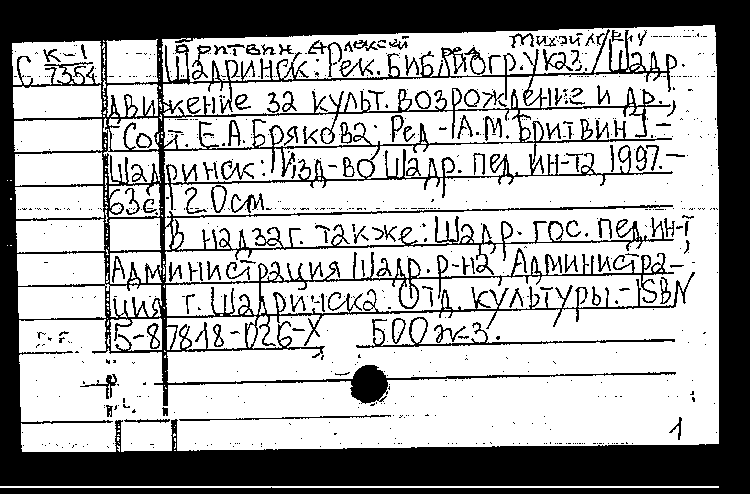 Бритвин Алексей Михайлович ред.
С К-1
7354
Шадринск: Рек. библиогр. указ. / Шадр.
движение за культ. возрождение и др.;
[Сост. Е.А. Брякова; Ред - А.М. Бритвин]. -
Шадринск: Изд-во Шадр. пед. ин-та, 1997. -
63с.; 20см.
В надзаг. также: Шадр. гос. пед. ин-т,
Администрация Шадр. р-на, Администра-
ция г. Шадринска. Отд. культуры. - ISBN
5-87818-026-X 500 экз.
1